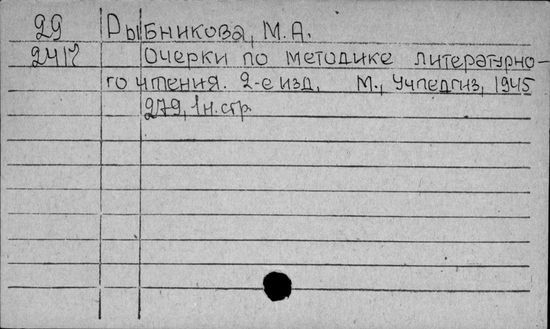 29 Рыбникова, М.А.
2417 Очерки по методике литературно-
го чтения. 2-е изд. М., Учпедгиз, 1945
279, 1н. стр.